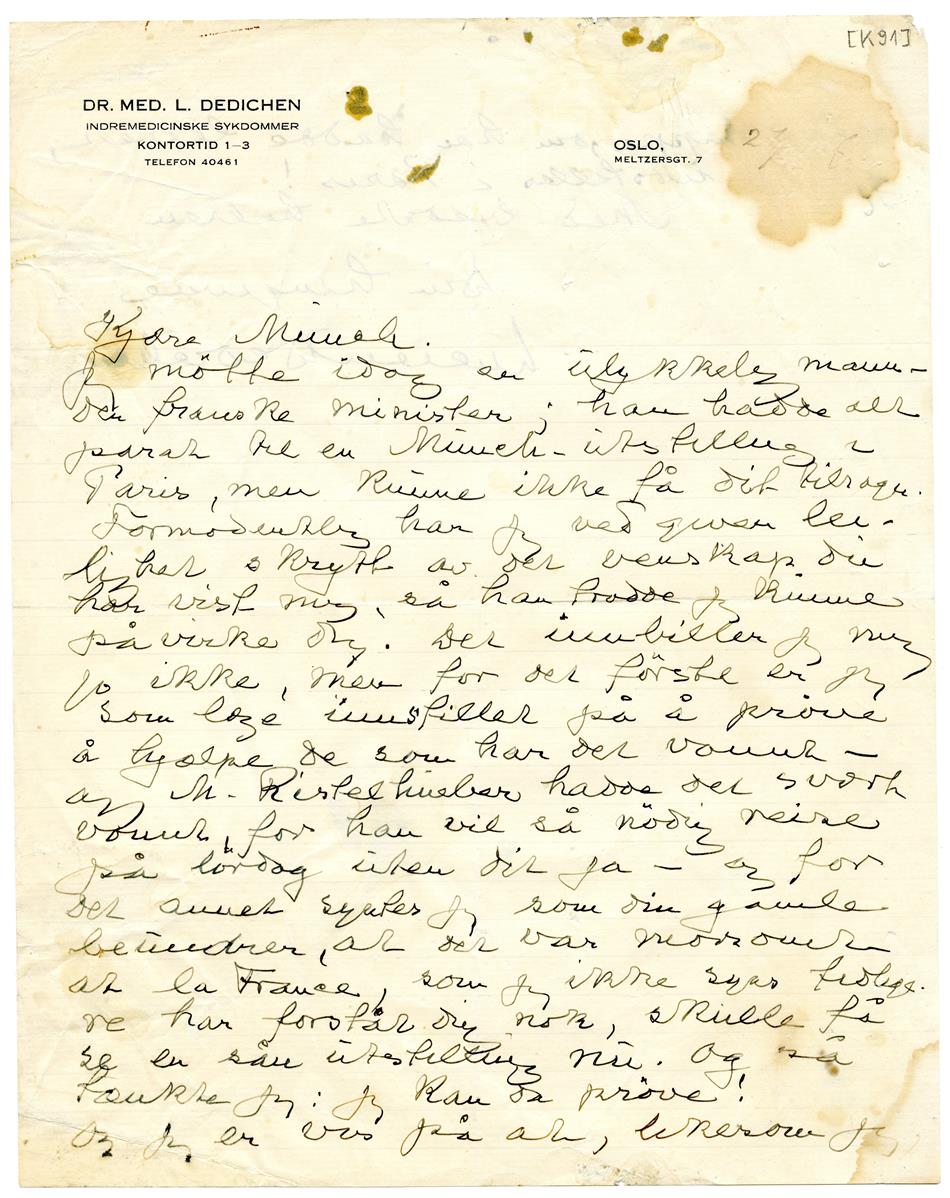 [K91]
DR. MED. L. DEDICHEN
INDREMEDICINSKE SYKDOMMER
KONTORTID 1–3
TELEFON 40461
OSLO,
MELTZERSGT. 7
Kjære Munch.
Jeg møtte idag en ulykkelig mann –
den franske minister; han hadde alt
parat til en Munch-utstilling i
Paris, men kunne ikke få dit tilsagn.
Formodentlig har jeg ved given lei-
lighet skrytt av det venskap du
har vist mig, så han trodde jeg kunne
påvirke dig. Det innbiller jeg mig
jo ikke, men for det første er jeg
som læge innstillet på å prøve
å hjælpe de som har det vonnt –
og M. Ristelhueber hadde det svært
vonnt, for han vil så nødig reise
på lørdag uten dit ja – og for
det annet syntes jeg som din gamle
beundrer, at det var morsomt
at la France, som jeg ikke syns tidlige-
re har forståt dig nok, skulle få
se en sån utstilling nu. Og så
tænkte jeg: jeg kan da prøve!
Og jeg er vis på at, likesom jeg